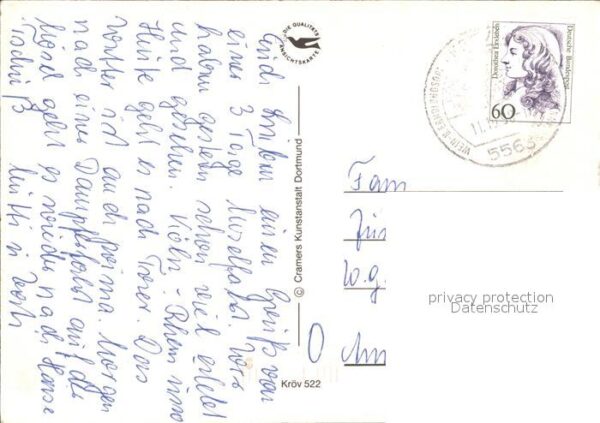 Euch Lieben einen Gruß von
einer 3 Tage Moselfahrt. Wir
haben gestern schon viel erlebt
und gesehen. Köln - Rhein usw
Heute geht es nach Trier. Das
Wetter ist auch prima. Morgen
nach einer Dampferfahrt auf der
Mosel geht es wieder nach Hause
Tschüß Mutti u
DIE QUALITÄTS
ANSICHTSKARTE
© Cramers Kunstanstalt Dortmund
Kröv 522
Dorothea Erxleben
Deutsche Bundespost
60
5563
Fam
W.g.
O
privacy protection
Datenschutz